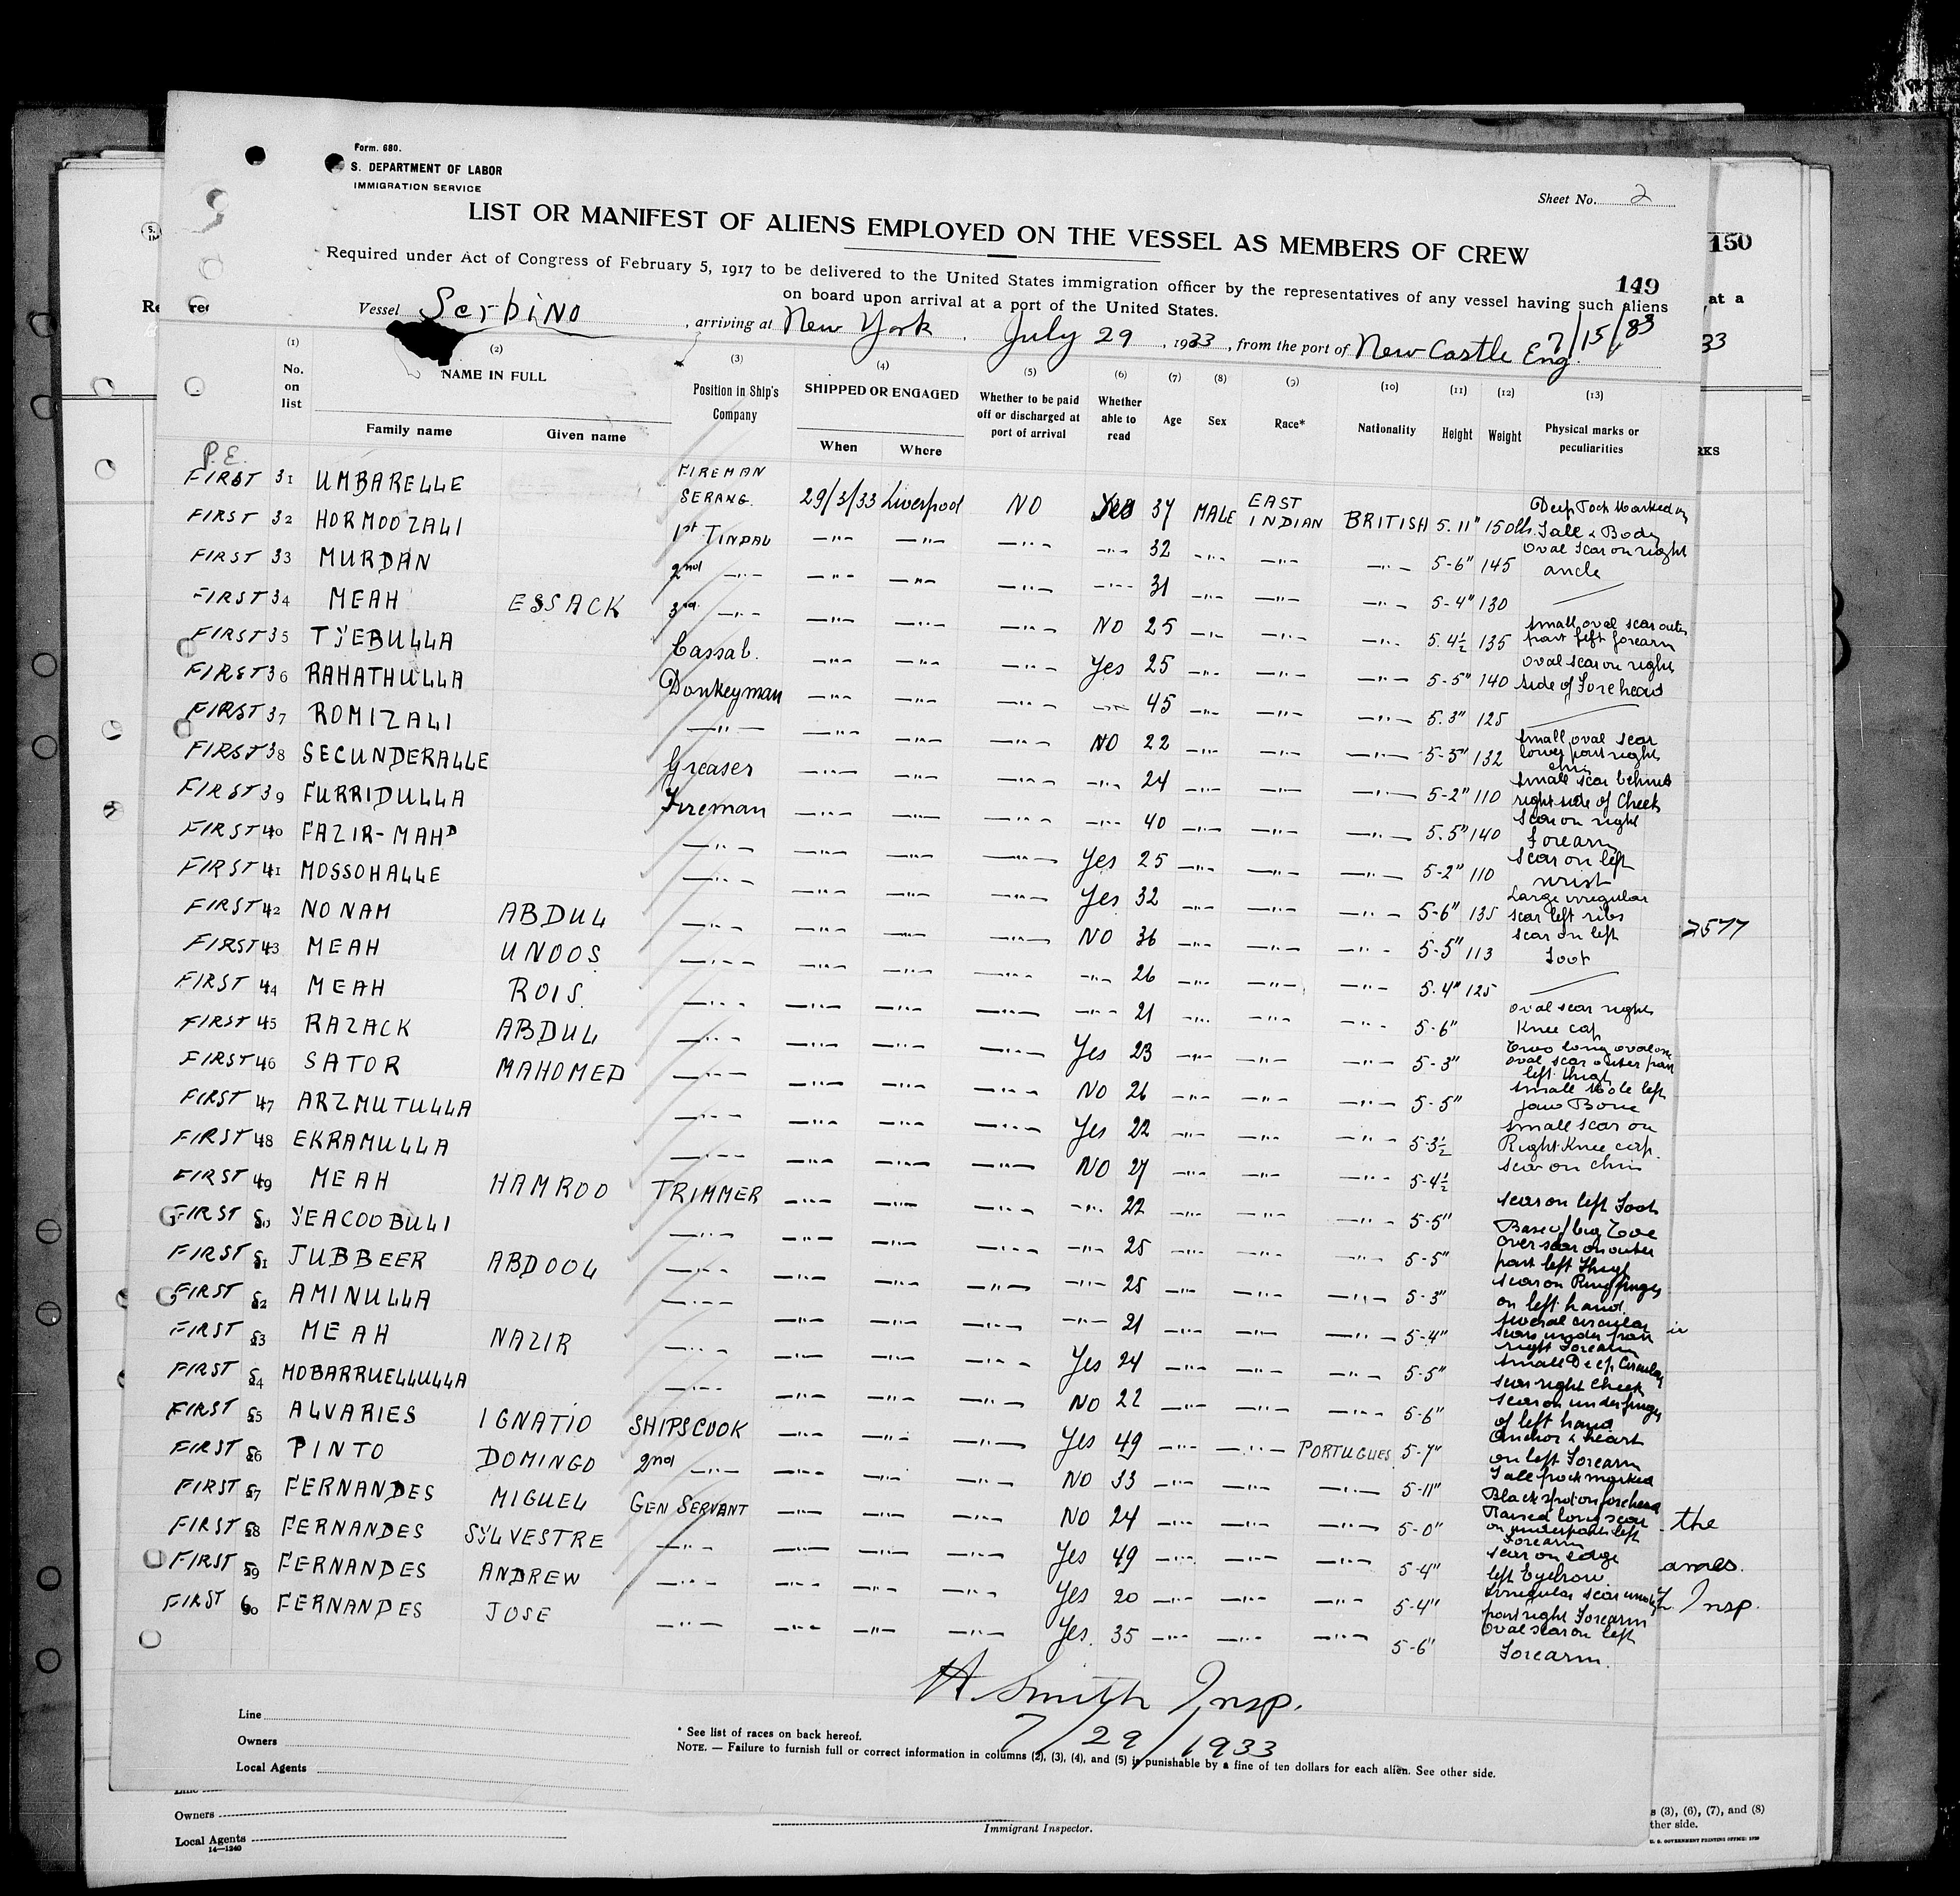 Form. 680.
S. DEPARTMENT OF LABOR
IMMIGRATION SERVICE
Sheet No. 2
LIST OR MANIFEST OF ALIENS EMPLOYED ON THE VESSEL AS MEMBERS OF CREW
149
150
Required under Act of Congress of February 5, 1917 to be delivered to the United States immigration officer by the representatives of any vessel having such aliens
on board upon arrival at a port of the United States.
Vessel Serbino, arriving at New York. July 29, 1933, from the port of New Castle Eng. 7/15/33
(1) (2) (3) (4) (5) (6) (7) (8) (9) (10) (11) (12) (13)
No. on list NAME IN FULL Position in Ship's Company SHIPPED OR ENGAGED Whether to be paid off or discharged at port of arrival Whether able to read Age Sex Race* Nationality Height Weight Physical marks or peculiarities
Family name Given name When Where
P.E.
FIRST 31 UMBARELLE FIREMAN SERANG. 29/3/33 Liverpool NO Yes 37 MALE EAST INDIAN BRITISH 5. 11" 150 lbs. Deep Pock Marked on Face & Body
FIRST 32 HORMOOZALI 1st TINDAL —"— —"— —"— —"— 32 —"— —"— —"— 5-6" 145 oval scar on right ancle
FIRST 33 MURDAN 2nd —"— —"— —"— —"— —"— 31 —"— —"— —"— 5-4" 130 —
FIRST 34 MEAH ESSACK 3rd —"— —"— —"— —"— NO 25 —"— —"— —"— 5. 4½ 135 small oval scar outer part left forearm
FIRST 35 TYEBULLA Cassab. —"— —"— —"— Yes 25 —"— —"— —"— 5-5" 140 oval scar on right side of Forehead
FIRST 36 RAHATHULLA Donkeyman —"— —"— —"— —"— 45 —"— —"— —"— 5. 3" 125 —
FIRST 37 ROMIZALI —"— —"— —"— —"— NO 22 —"— —"— —"— 5-5" 132 small oval scar lower part right chin
FIRST 38 SECUNDERALLE Greaser —"— —"— —"— —"— 24 —"— —"— —"— 5-2" 110 small scar behind right side of Cheek
FIRST 39 FURRIDULLA Fireman —"— —"— —"— —"— 40 —"— —"— —"— 5. 5" 140 scar on right Forearm
FIRST 40 FAZIR-MAHD —"— —"— —"— —"— Yes 25 —"— —"— —"— 5-2" 110 scar on left wrist
FIRST 41 MOSSOHALLE —"— —"— —"— —"— Yes 32 —"— —"— —"— 5-6" 135 Large irregular scar left ribs
FIRST 42 NONAM ABDUL —"— —"— —"— —"— NO 36 —"— —"— —"— 5-5" 113 scar on left Foot
2577
FIRST 43 MEAH UNOOS —"— —"— —"— —"— —"— 26 —"— —"— —"— 5. 4" 125 —
FIRST 44 MEAH ROIS. —"— —"— —"— —"— —"— 21 —"— —"— —"— 5-6" oval scar right Knee cap
FIRST 45 RAZACK ABDUL —"— —"— —"— —"— Yes 23 —"— —"— —"— 5-3" Two long oval one oval scar outer part left thigh
FIRST 46 SATOR MAHOMED —"— —"— —"— —"— NO 26 —"— —"— —"— 5-5" small Mole left jaw Bone
FIRST 47 ARZMUTULLA —"— —"— —"— —"— Yes 22 —"— —"— —"— 5-3½ small scar on Right Knee cap.
FIRST 48 EKRAMULLA —"— —"— —"— —"— NO 27 —"— —"— —"— 5-4½ scar on chin
FIRST 49 MEAH HAMROO TRIMMER —"— —"— —"— —"— 22 —"— —"— —"— 5-5" scar on left Foot Base of big Toe
FIRST 50 YEACOOBULI —"— —"— —"— —"— —"— 25 —"— —"— —"— 5-5" over scar on outer part left Thigh
FIRST 51 JUBBEER ABDOOL —"— —"— —"— —"— —"— 25 —"— —"— —"— 5-3" scar on Ring finger on left hand.
FIRST 52 AMINULLA —"— —"— —"— —"— —"— 21 —"— —"— —"— 5-4" several circular scars under part right Forearm
FIRST 53 MEAH NAZIR —"— —"— —"— —"— Yes 24 —"— —"— —"— 5-5" small Deep Circular scar right Cheek
FIRST 54 MOBARRUELLULLA —"— —"— —"— —"— NO 22 —"— —"— —"— 5-6" scar on under finger of left hand
FIRST 55 ALVARIES IGNATIO SHIPSCOOK —"— —"— —"— Yes 49 —"— —"— PORTUGUES 5-7" Anchor & heart on left Forearm
FIRST 56 PINTO DOMINGO 2nd —"— —"— —"— —"— NO 33 —"— —"— —"— 5-11" Face pock marked Black spot on forehead
FIRST 57 FERNANDES MIGUEL GEN SERVANT —"— —"— —"— NO 24 —"— —"— —"— 5-0" Raised long scar on underpart left Forearm
the
FIRST 58 FERNANDES SYLVESTRE —"— —"— —"— —"— Yes 49 —"— —"— —"— 5-4" scar on edge left Eyebrow
FIRST 59 FERNANDES ANDREW —"— —"— —"— —"— Yes 20 —"— —"— —"— 5-4" Irregular scar under part right Forearm
Insp.
FIRST 60 FERNANDES JOSE —"— —"— —"— —"— Yes. 35 —"— —"— —"— 5-6" Oval scar on left Forearm.
H. Smith Insp.
7/29/1933
Line
Owners
Local Agents
* See list of races on back hereof.
NOTE. — Failure to furnish full or correct information in columns (2), (3), (4), and (5) is punishable by a fine of ten dollars for each alien. See other side.
Owners
Local Agents
14—1240
Immigrant Inspector.
s (3), (6), (7), and (8)
ther side.
U. S. GOVERNMENT PRINTING OFFICE: